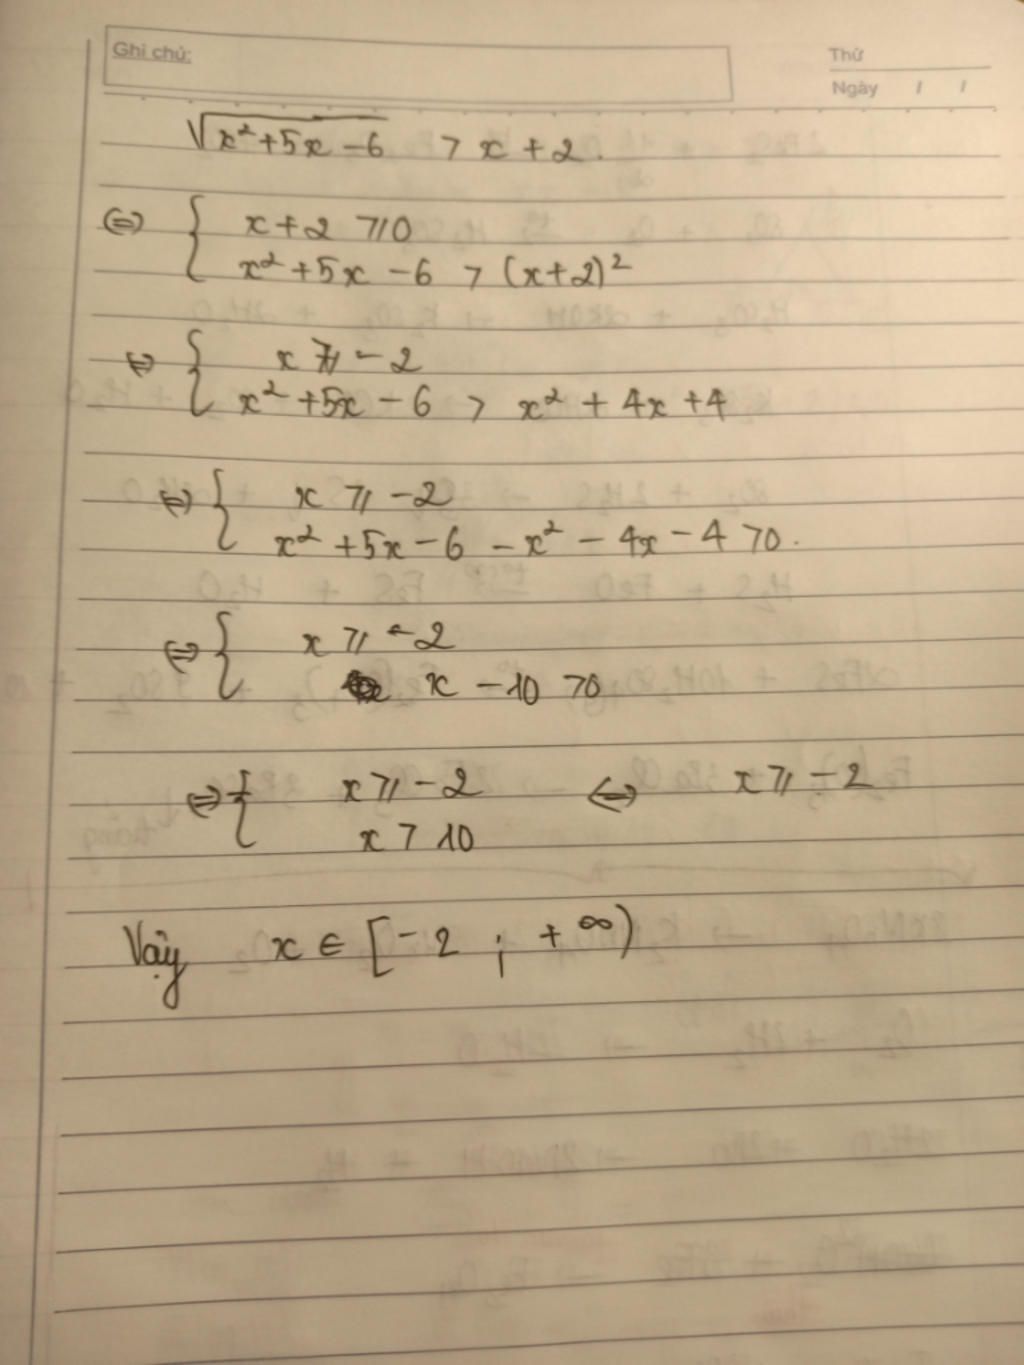 Ghi chú:
Thứ
Ngày / /
√(x²+5x-6) > x+2.
⇔ { x+2 ⩾ 0
x²+5x-6 > (x+2)²
⇔ { x ⩾ -2
x²+5x-6 > x²+4x+4
⇔ { x ⩾ -2
x²+5x-6-x²-4x-4 >0.
⇔ { x ⩾ -2
x-10 >0
⇔ { x ⩾ -2 ⇔ x ⩾ -2
x > 10
Vậy x ∈ [-2 ; +∞)